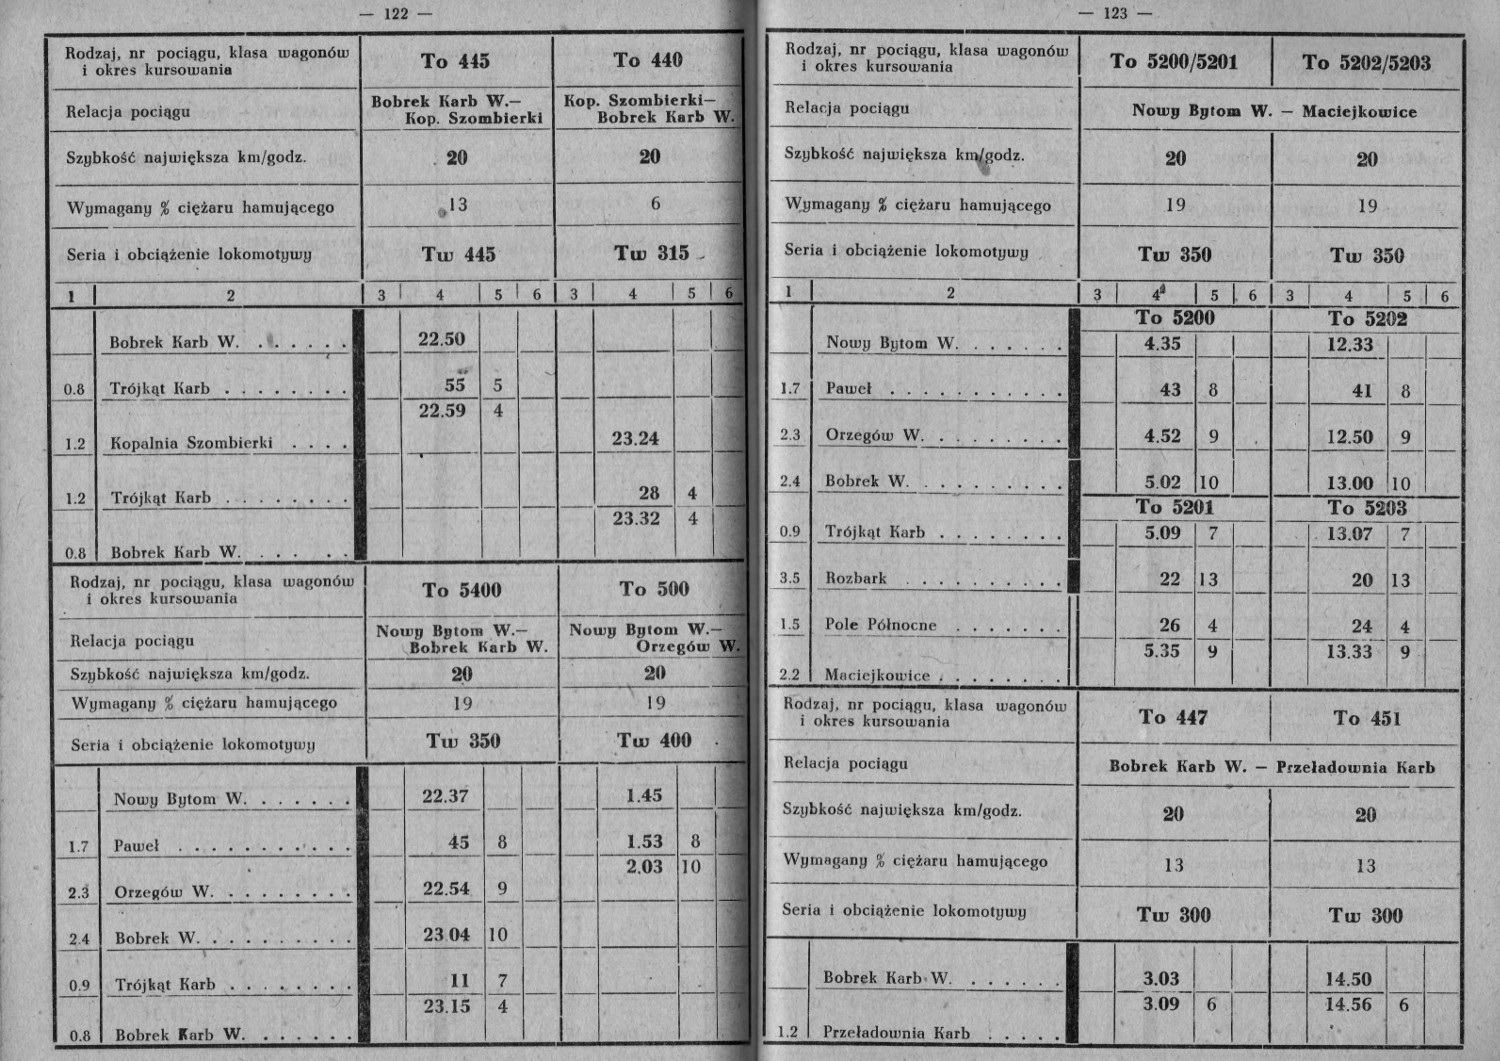 — 122 —
Rodzaj, nr pociągu, klasa wagonów
i okres kursowania
To 445
To 440
Relacja pociągu
Bobrek Karb W.—
Kop. Szombierki
Kop. Szombierki—
Bobrek Karb W.
Szybkość największa km/godz.
20
20
Wymagany % ciężaru hamującego
13
6
Seria i obciążenie lokomotywy
Tw 445
Tw 315
1 2 3 4 5 6 3 4 5 6
Bobrek Karb W. . . . . . . 22.50
0.8 Trójkąt Karb . . . . . . . . 55 5
22.59 4
1.2 Kopalnia Szombierki . . . . 23.24
1.2 Trójkąt Karb . . . . . . . . 28 4
23.32 4
0.8 Bobrek Karb W. . . . . .
Rodzaj, nr pociągu, klasa wagonów
i okres kursowania
To 5400
To 500
Relacja pociągu
Nowy Bytom W.—
Bobrek Karb W.
Nowy Bytom W.—
Orzegów W.
Szybkość największa km/godz.
20
20
Wymagany % ciężaru hamującego
19
19
Seria i obciążenie lokomotywy
Tw 350
Tw 400
Nowy Bytom W. . . . . . . 22.37 1.45
1.7 Paweł . . . . . . . . . . . 45 8 1.53 8
2.03 10
2.3 Orzegów W. . . . . . . . . 22.54 9
2.4 Bobrek W. . . . . . . . . . 23 04 10
0.9 Trójkąt Karb . . . . . . . . 11 7
23.15 4
0.8 Bobrek Karb W. . . . . . .
— 123 —
Rodzaj, nr pociągu, klasa wagonów
i okres kursowania
To 5200/5201
To 5202/5203
Relacja pociągu
Nowy Bytom W. — Maciejkowice
Szybkość największa km/godz.
20
20
Wymagany % ciężaru hamującego
19
19
Seria i obciążenie lokomotywy
Tw 350
Tw 350
1 2 3 4 5 6 3 4 5 6
To 5200 To 5202
Nowy Bytom W. . . . . . . 4.35 12.33
1.7 Paweł . . . . . . . . . . . 43 8 41 8
2.3 Orzegów W. . . . . . . . . 4.52 9 12.50 9
2.4 Bobrek W. . . . . . . . . . 5.02 10 13.00 10
To 5201 To 5203
0.9 Trójkąt Karb . . . . . . . . 5.09 7 13.07 7
3.5 Rozbark . . . . . . . . . . 22 13 20 13
1.5 Pole Północne . . . . . . . 26 4 24 4
5.35 9 13.33 9
2.2 Maciejkowice . . . . . . . .
Rodzaj, nr pociągu, klasa wagonów
i okres kursowania
To 447
To 451
Relacja pociągu
Bobrek Karb W. — Przeładownia Karb
Szybkość największa km/godz.
20
20
Wymagany % ciężaru hamującego
13
13
Seria i obciążenie lokomotywy
Tw 300
Tw 300
Bobrek Karb W. . . . . . . 3.03 14.50
3.09 6 14.56 6
1.2 Przeładownia Karb . . . . .